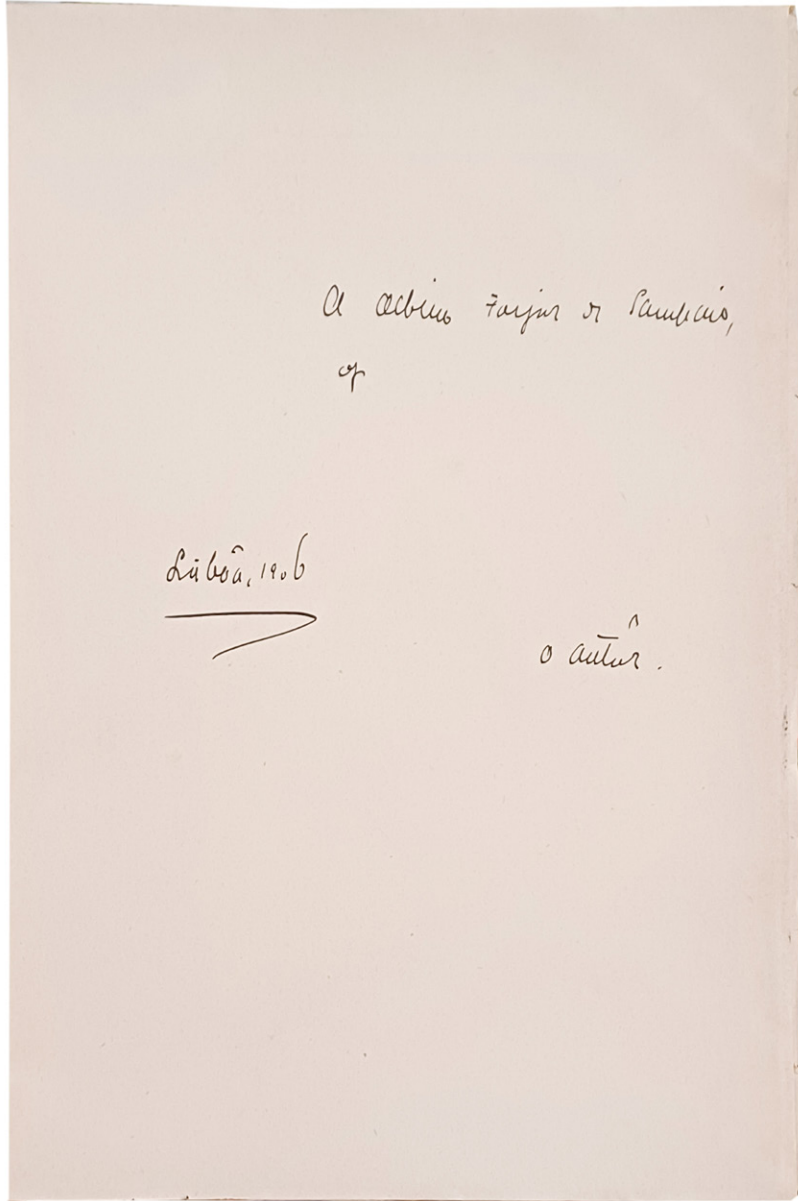 A Albino Forjaz de Sampaio,
of
Lisbôa, 1906
o autôr.